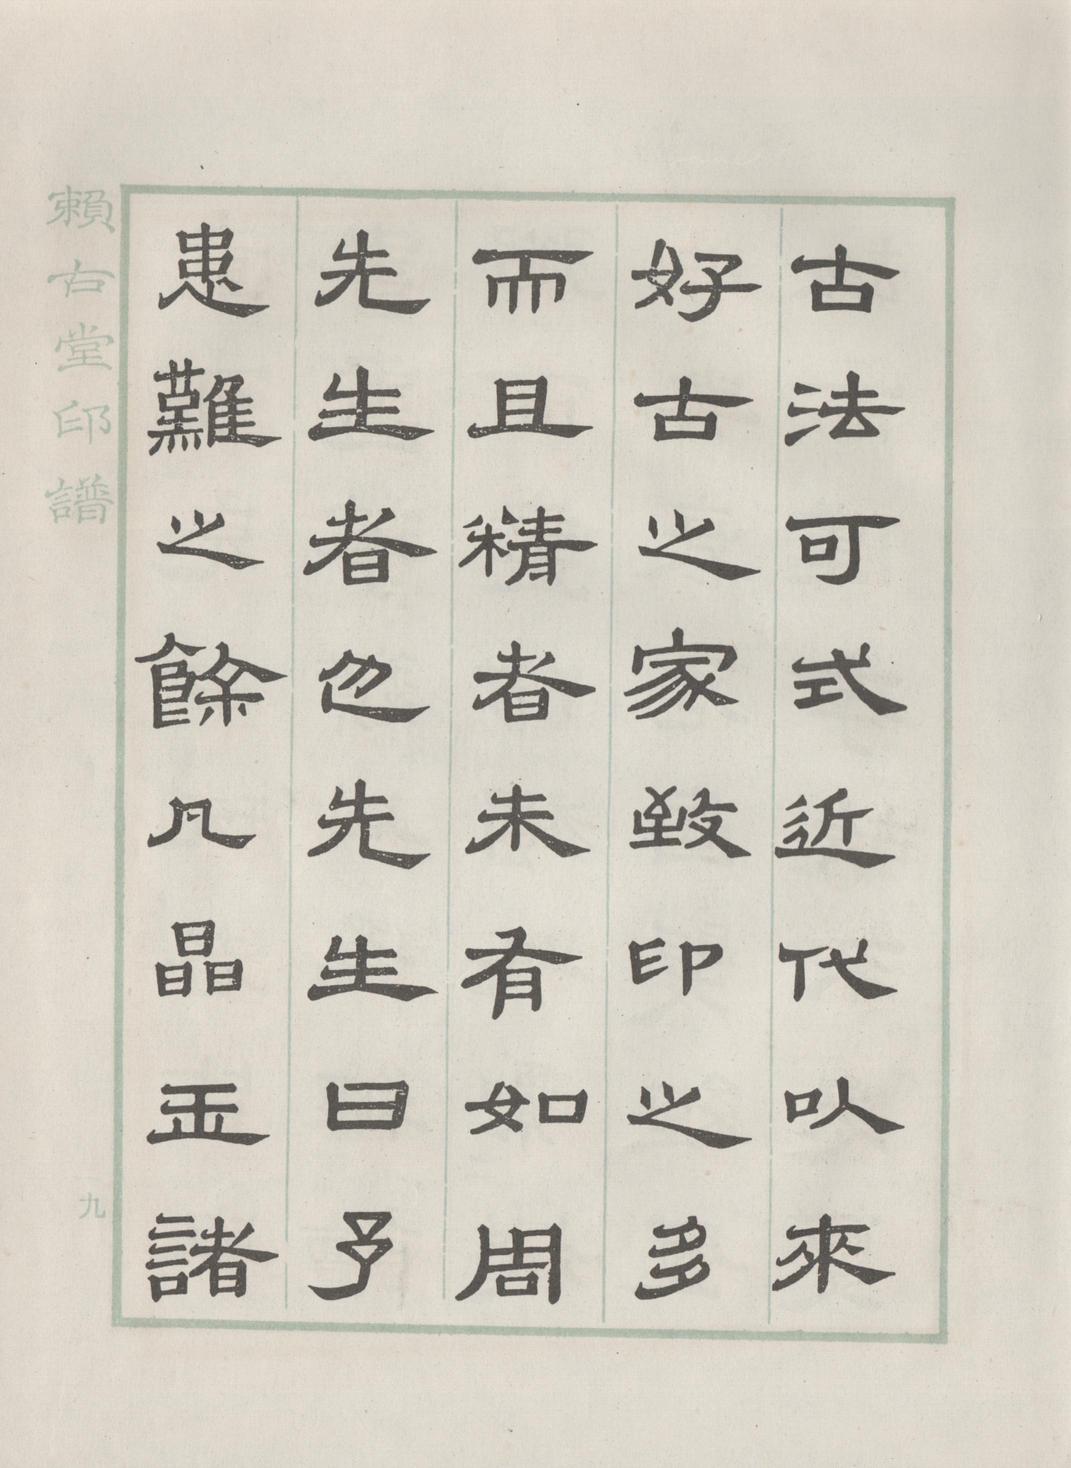 古法可式近代以來
好古之家致印之多
而且精者未有如周
先生者也先生曰予
患難之餘凡晶玉諸
賴古堂印譜
九